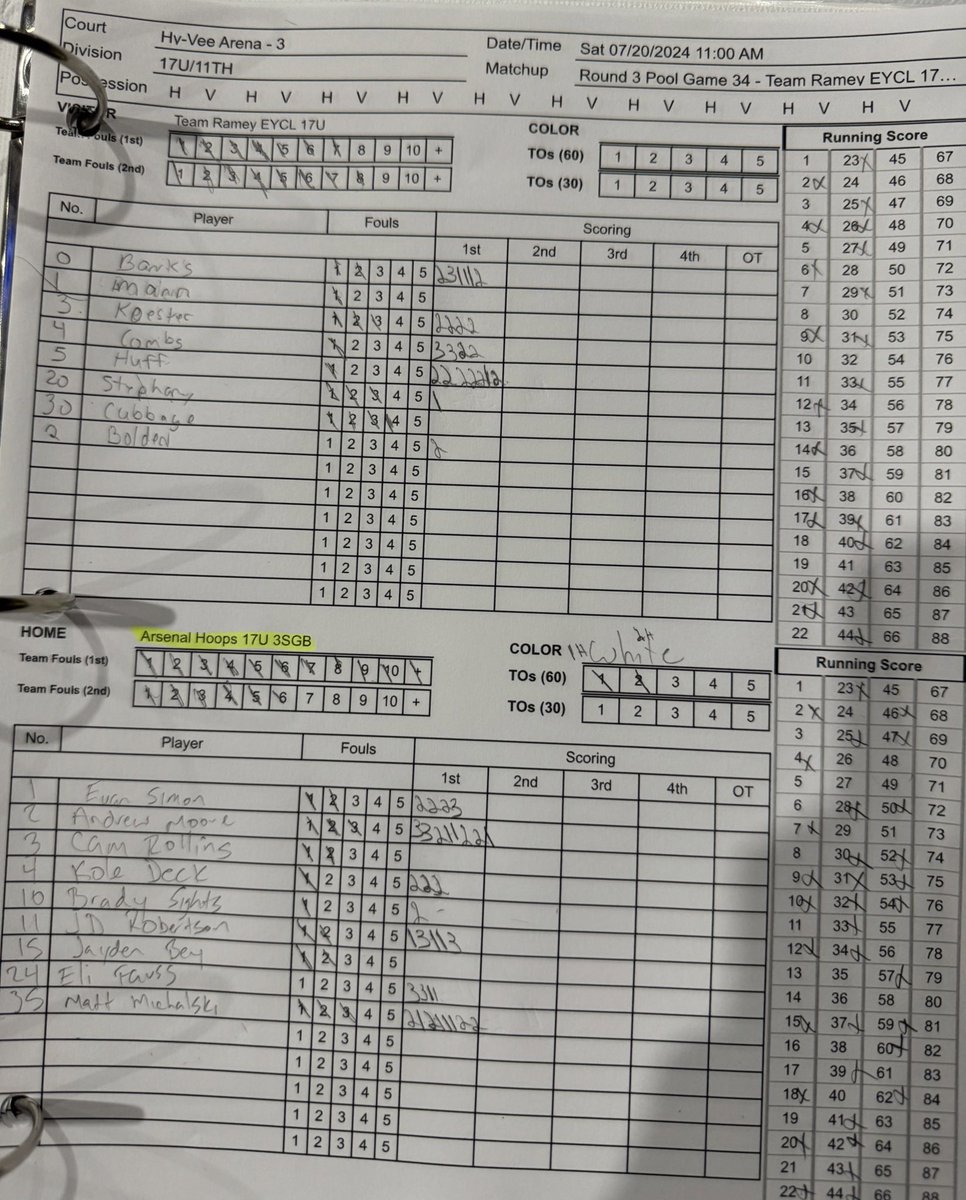 Court Hy-Vee Arena - 3 Date/Time Sat 07/20/2024 11:00 AM
Division 17U/11TH Matchup Round 3 Pool Game 34 - Team Ramey EYCL 17...
Possession H V H V H V H V H V H V H V H V H V H V
VISITOR Team Ramey EYCL 17U COLOR
Team Fouls (1st) 1 2 3 4 5 6 7 8 9 10 + TOs (60) 1 2 3 4 5
Team Fouls (2nd) 1 2 3 4 5 6 7 8 9 10 + TOs (30) 1 2 3 4 5
No. Player Fouls Scoring
1st 2nd 3rd 4th OT
0 Banks 1 2 3 4 5 231112
1 Mann 1 2 3 4 5
3 Koester 1 2 3 4 5 2222
4 Combs 1 2 3 4 5 3322
5 Huff 1 2 3 4 5 2222212
20 Strphany 1 2 3 4 5 1
30 Cubbage 1 2 3 4 5
2 Bolden 1 2 3 4 5 2
1 2 3 4 5
1 2 3 4 5
1 2 3 4 5
1 2 3 4 5
1 2 3 4 5
1 2 3 4 5
Running Score
1 23 45 67
2 24 46 68
3 25 47 69
4 26 48 70
5 27 49 71
6 28 50 72
7 29 51 73
8 30 52 74
9 31 53 75
10 32 54 76
11 33 55 77
12 34 56 78
13 35 57 79
14 36 58 80
15 37 59 81
16 38 60 82
17 39 61 83
18 40 62 84
19 41 63 85
20 42 64 86
21 43 65 87
22 44 66 88
HOME Arsenal Hoops 17U 3SGB COLOR White
Team Fouls (1st) 1 2 3 4 5 6 7 8 9 10 + TOs (60) 1 2 3 4 5
Team Fouls (2nd) 1 2 3 4 5 6 7 8 9 10 + TOs (30) 1 2 3 4 5
No. Player Fouls Scoring
1st 2nd 3rd 4th OT
1 Evan Simon 1 2 3 4 5 2223
2 Andrew Moore 1 2 3 4 5
3 Cam Rollins 1 2 3 4 5
4 Kole Deck 1 2 3 4 5 222
10 Brady Sights 1 2 3 4 5 2
11 JD Robertson 1 2 3 4 5 13113
15 Jayden Bey 1 2 3 4 5
24 Eli Fauss 1 2 3 4 5 3311
35 Matt Michalski 1 2 3 4 5 21211122
1 2 3 4 5
1 2 3 4 5
1 2 3 4 5
1 2 3 4 5
1 2 3 4 5
Running Score
1 23 45 67
2 24 46 68
3 25 47 69
4 26 48 70
5 27 49 71
6 28 50 72
7 29 51 73
8 30 52 74
9 31 53 75
10 32 54 76
11 33 55 77
12 34 56 78
13 35 57 79
14 36 58 80
15 37 59 81
16 38 60 82
17 39 61 83
18 40 62 84
19 41 63 85
20 42 64 86
21 43 65 87
22 44 66 88